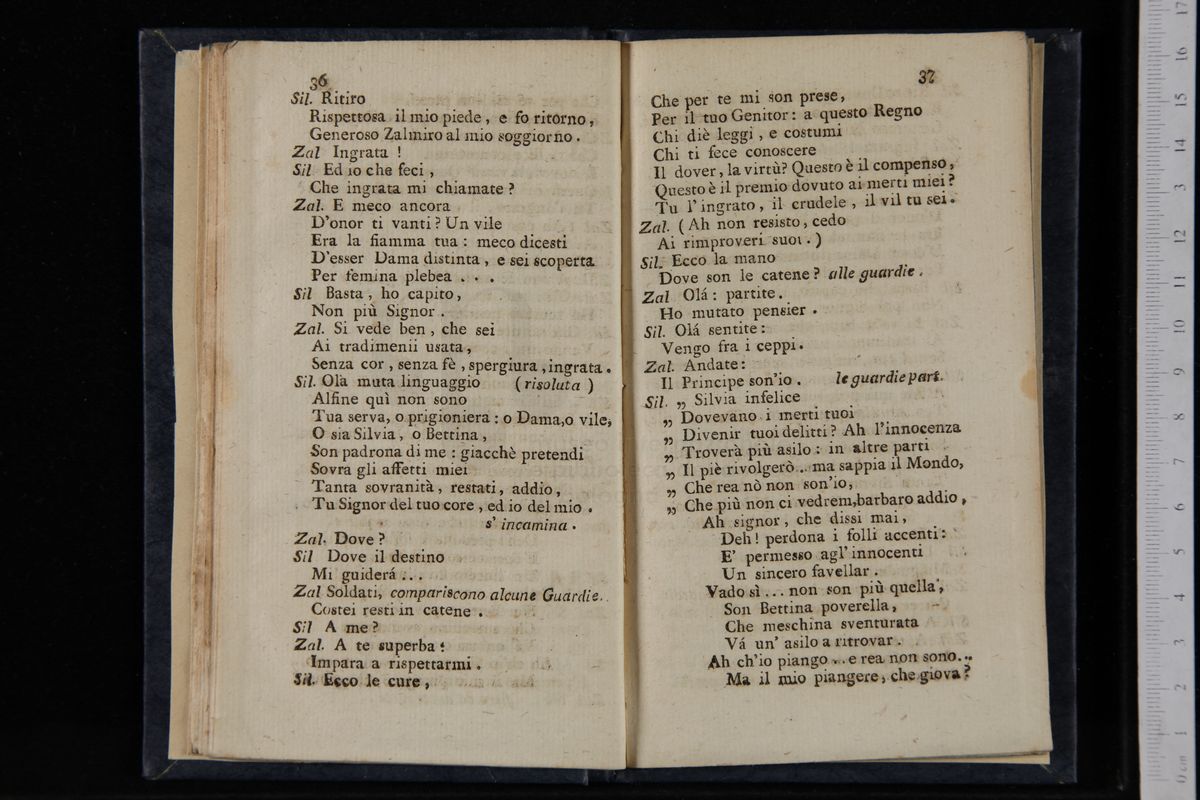 36
Sil. Ritiro
Rispettosa il mio piede, e fo ritorno,
Generoso Zalmiro al mio soggiorno.
Zal Ingrata !
Sil Ed io che feci,
Che ingrata mi chiamate ?
Zal. E meco ancora
D'onor ti vanti ? Un vile
Era la fiamma tua : meco dicesti
D'esser Dama distinta, e sei scoperta
Per femina plebea . . .
Sil Basta, ho capito,
Non più Signor.
Zal. Si vede ben, che sei
Ai tradimenii usata,
Senza cor, senza fè, spergiura, ingrata.
Sil. Olà muta linguaggio (risoluta)
Alfine quì non sono
Tua serva, o prigioniera : o Dama, o vile,
O sia Silvia, o Bettina,
Son padrona di me : giacchè pretendi
Sovra gli affetti miei
Tanta sovranità, restati, addio,
Tu Signor del tuo core, ed io del mio.
s' incamina.
Zal. Dove ?
Sil Dove il destino
Mi guiderá ...
Zal Soldati, compariscono alcune Guardie.
Costei resti in catene.
Sil A me ?
Zal. A te superba !
Impara a rispettarmi.
Sil. Ecco le cure,
37
Che per te mi son prese,
Per il tuo Genitor : a questo Regno
Chi diè leggi, e costumi
Chi ti fece conoscere
Il dover, la virtù? Questo è il compenso,
Questo è il premio dovuto ai merti miei ?
Tu l'ingrato, il crudele, il vil tu sei.
Zal. (Ah non resisto, cedo
Ai rimproveri suoi.)
Sil. Ecco la mano
Dove son le catene ? alle guardie.
Zal Olá : partite.
Ho mutato pensier.
Sil. Olá sentite :
Vengo fra i ceppi.
Zal. Andate :
Il Principe son'io. le guardie part.
Sil. „ Silvia infelice
„ Dovevano i merti tuoi
„ Divenir tuoi delitti ? Ah l'innocenza
„ Troverà più asilo : in altre parti
„ Il piè rivolgerò .. ma sappia il Mondo,
„ Che rea nò non son'io,
„ Che più non ci vedrem, barbaro addio,
Ah signor, che dissi mai,
Deh ! perdona i folli accenti :
E' permesso agl'innocenti
Un sincero favellar.
Vado sì ... non son più quella,
Son Bettina poverella,
Che meschina sventurata
Vá un' asilo a ritrovar.
Ah ch'io piango ... e rea non sono...
Ma il mio piangere, che giova ?